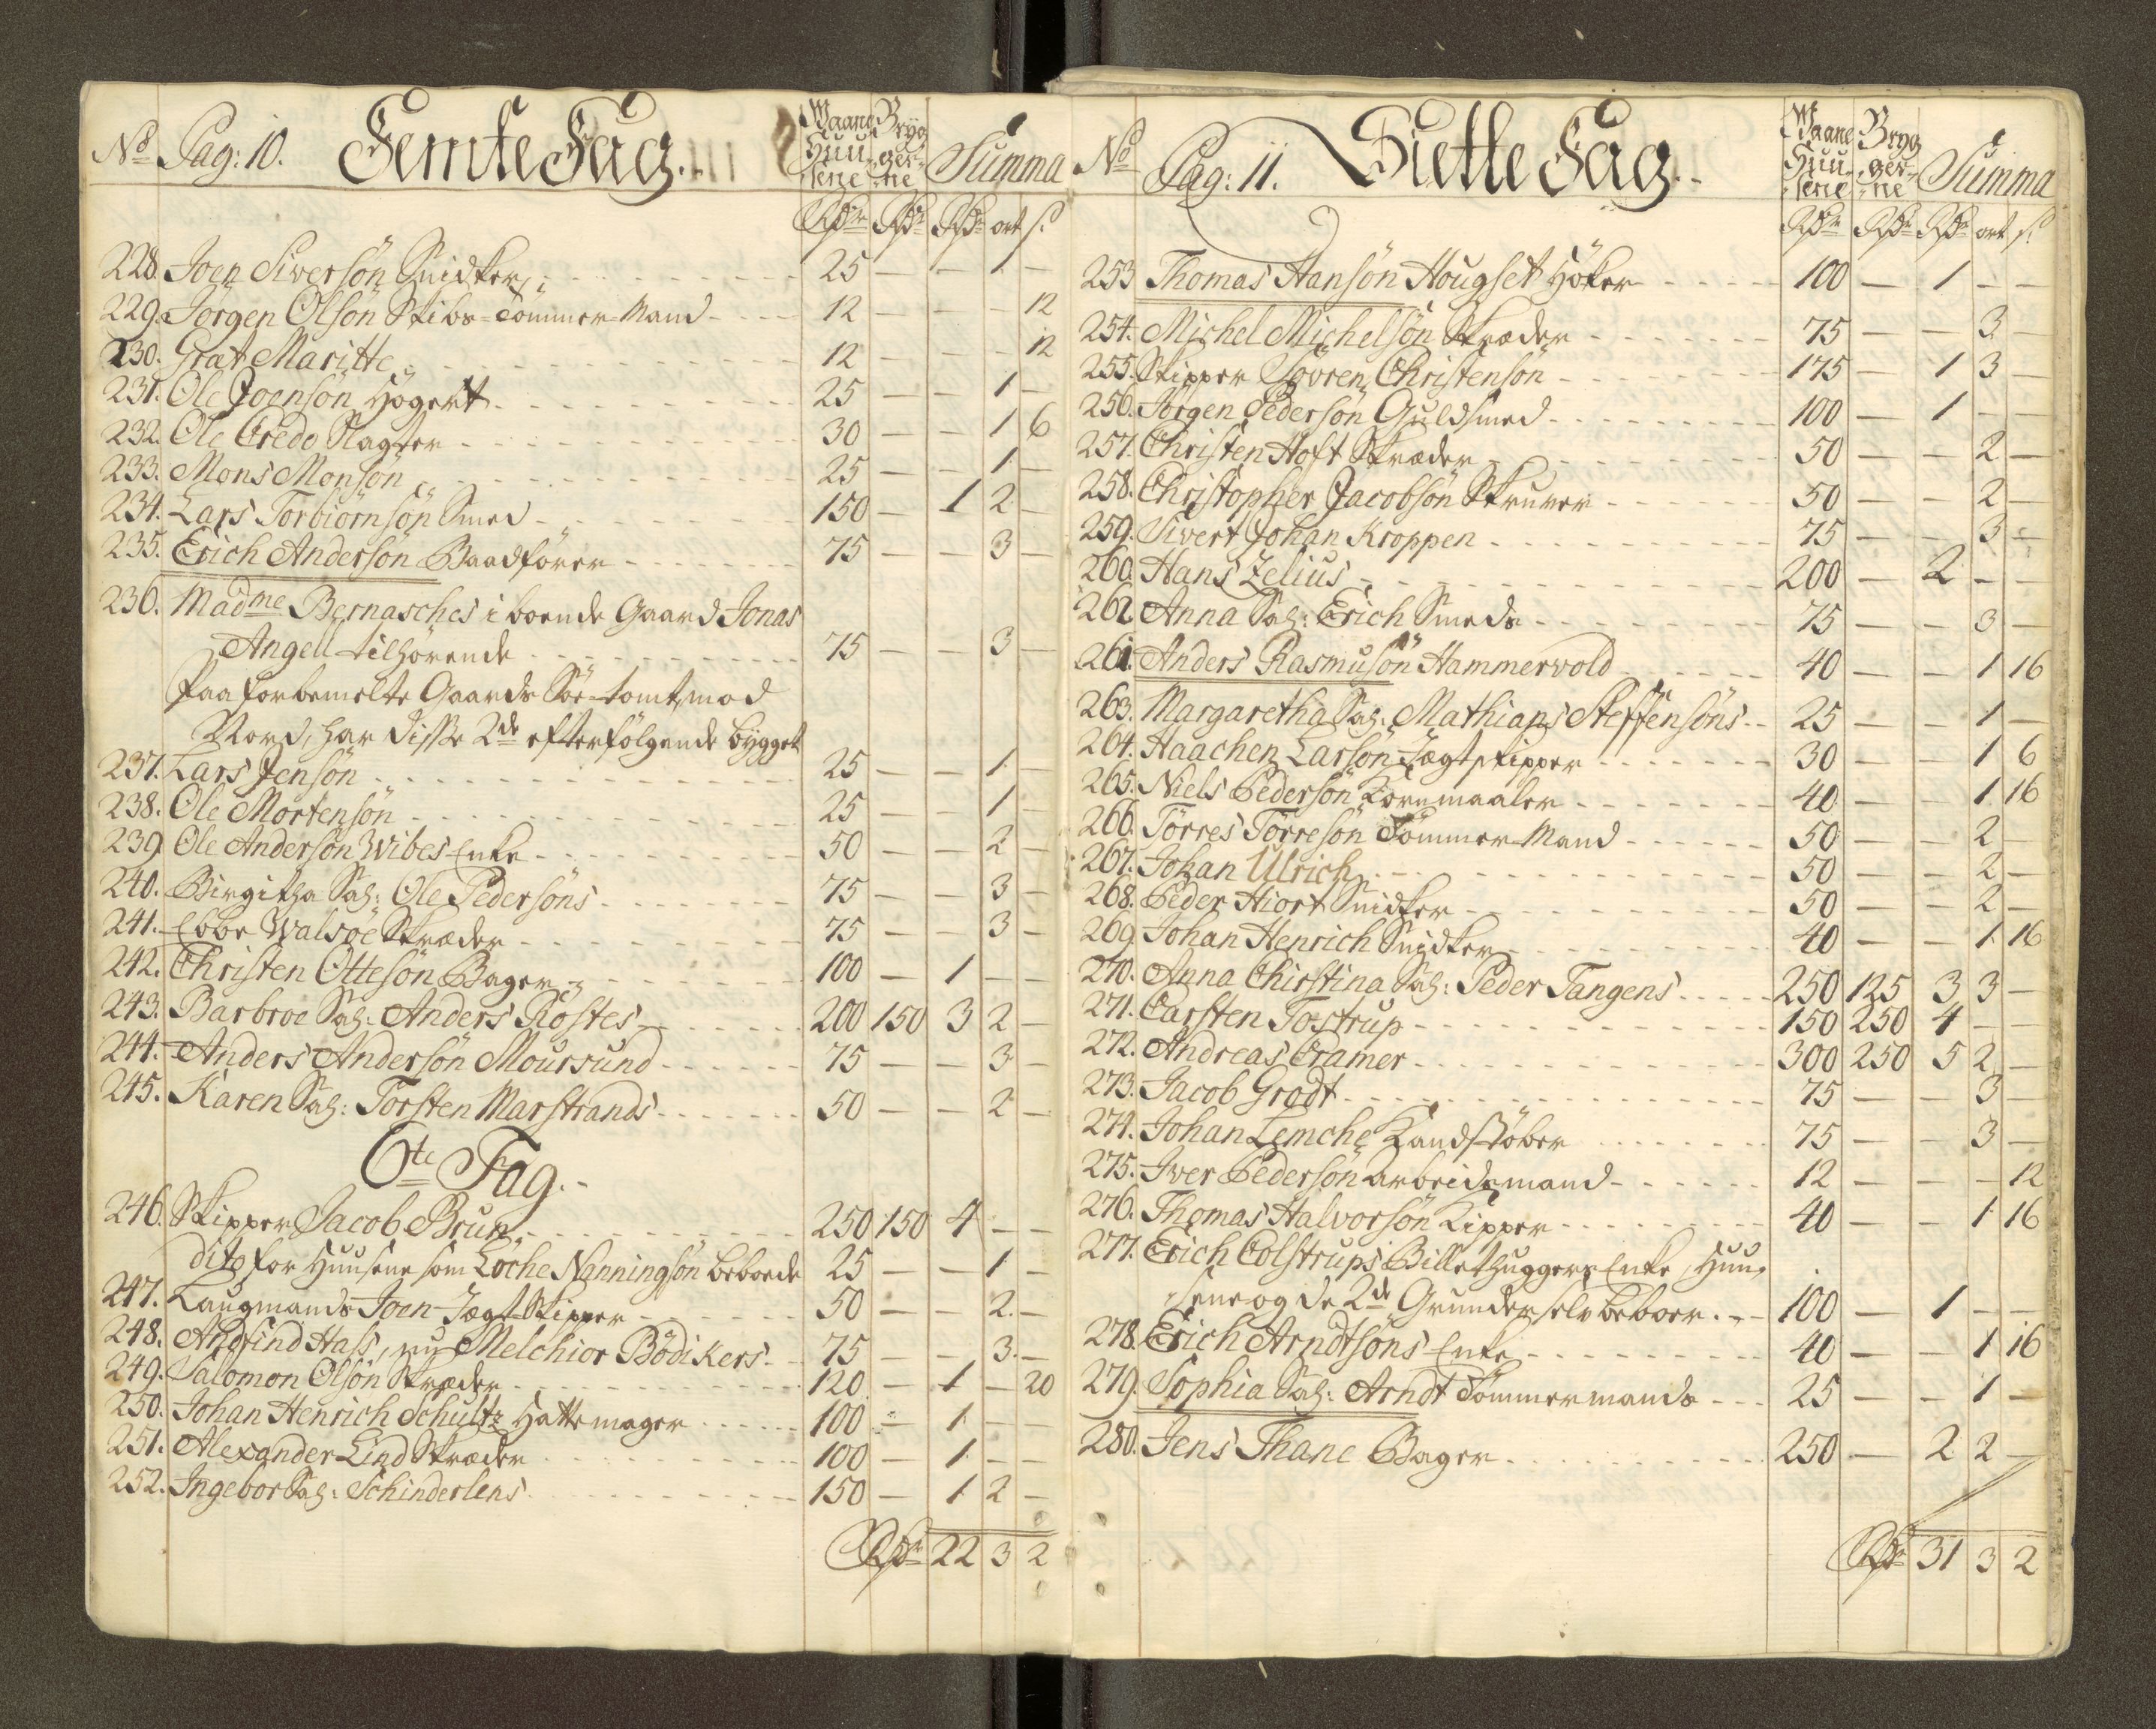 No Pag: 10. Femte Fag. Waane Huu- serne Bryg- ger- ne Summa
Rdr Rdr Rdr ort s.
228. Joen Siversön Snidker 25 — — 1 —
229. Jörgen Olsön Skibs-Tömmer-Mand 12 — — — 12
230. Grat Maritte 12 — — — 12
231. Ole Joensön Högert 25 — — 1 —
232. Ole Credo Slagter 30 — — 1 6
233. Mons Monsön 25 — — 1 —
234. Lars Torbiörnsön Smed 150 — 1 2 —
235. Erich Andersön Baadförer 75 — — 3 —
236. Madme Bernasches iboende Gaard Jonas
Angell tilhörende 75 — — 3 —
Paa forbemelte Gaards Söe-tomt, mod
Nord, har disse 2de efterfölgende bygget
237. Lars Jensön 25 — — 1 —
238. Ole Mortensön 25 — — 1 —
239. Ole Andersön Wibes Enke 50 — — 2 —
240. Birgitha Sal: Ole Pedersöns 75 — — 3 —
241. Ebbe Walsöe Skræder 75 — — 3 —
242. Christen Ottesön Bager 100 — 1 — —
243. Barbroe Sal: Anders Röstes 200 150 3 2 —
244. Anders Andersön Moursund 75 — — 3 —
245. Karen Sal: Torsten Marstrands 50 — — 2 —
6te Fag.
246. Skipper Jacob Brun 250 150 4 — —
dito for Huusene som Löche Nanningsön beboede 25 — — 1 —
247. Laugmands Joen Jægt-Skipper 50 — — 2 —
248. Andfind Hass, nu Melchior Bödikers 75 — — 3 —
249. Salomon Olsön Skræder 120 — 1 — 20
250. Johan Henrich Schultz Hattemager 100 — 1 — —
251. Alexander Lind Skræder 100 — 1 — —
252. Ingebor Sal: Schinderlens 150 — 1 2 —
Rdr 22 3 2
No Pag: 11. Siette Fag. Waane Huu- serne Bryg- ger- ne Summa
Rdr Rdr Rdr ort s.
253 Thomas Hansön Hougset Höker 100 — 1 — —
254. Michel Michelsön Skræder 75 — — 3 —
255. Skipper Sövren Christensön 175 — 1 3 —
256. Jörgen Pedersön Guldsmed 100 — 1 — —
257. Christen Hoft Skræder 50 — — 2 —
258. Christopher Jacobsön Skruver 50 — — 2 —
259. Sivert Johan Kroppen 75 — — 3 —
260. Hans Zelius 200 — 2 — —
262 Anna Sal: Erich Smeds 75 — — 3 —
261. Anders Rasmusön Hammervold 40 — — 1 16
263. Margaretha Sal: Mathias Steffensöns 25 — — 1 —
264. Haachen Larsön Jægtskipper 30 — — 1 6
265. Niels Pedersön Kornmaaler 40 — — 1 16
266. Törres Törresön Tömmer-Mand 50 — — 2 —
267. Johan Ulrich 50 — — 2 —
268. Peder Hiort Snidker 50 — — 2 —
269. Johan Henrich Snidker 40 — — 1 16
270. Anna Chirstina Sal: Peder Tangens 250 125 3 3 —
271. Carsten Tostrup 150 250 4 — —
272. Andreas Cramer 300 250 5 2 —
273. Jacob Grodt 75 — — 3 —
274. Johan Lemche Kandstöber 75 — — 3 —
275. Iver Pedersön Arbeidsmand 12 — — — 12
276. Thomas Halvorsön Kipper 40 — — 1 16
277. Erich Colstrups Billethuggers Enke, Huu-
sene og de 2de Grunder selv beboer 100 — 1 — —
278. Erich Arndtsöns Enke 40 — — 1 16
279. Sophia Sal: Arndt Tömmermands 25 — — 1 —
280. Jens Thane Bager 250 — 2 2 —
Rdr 31 3 2